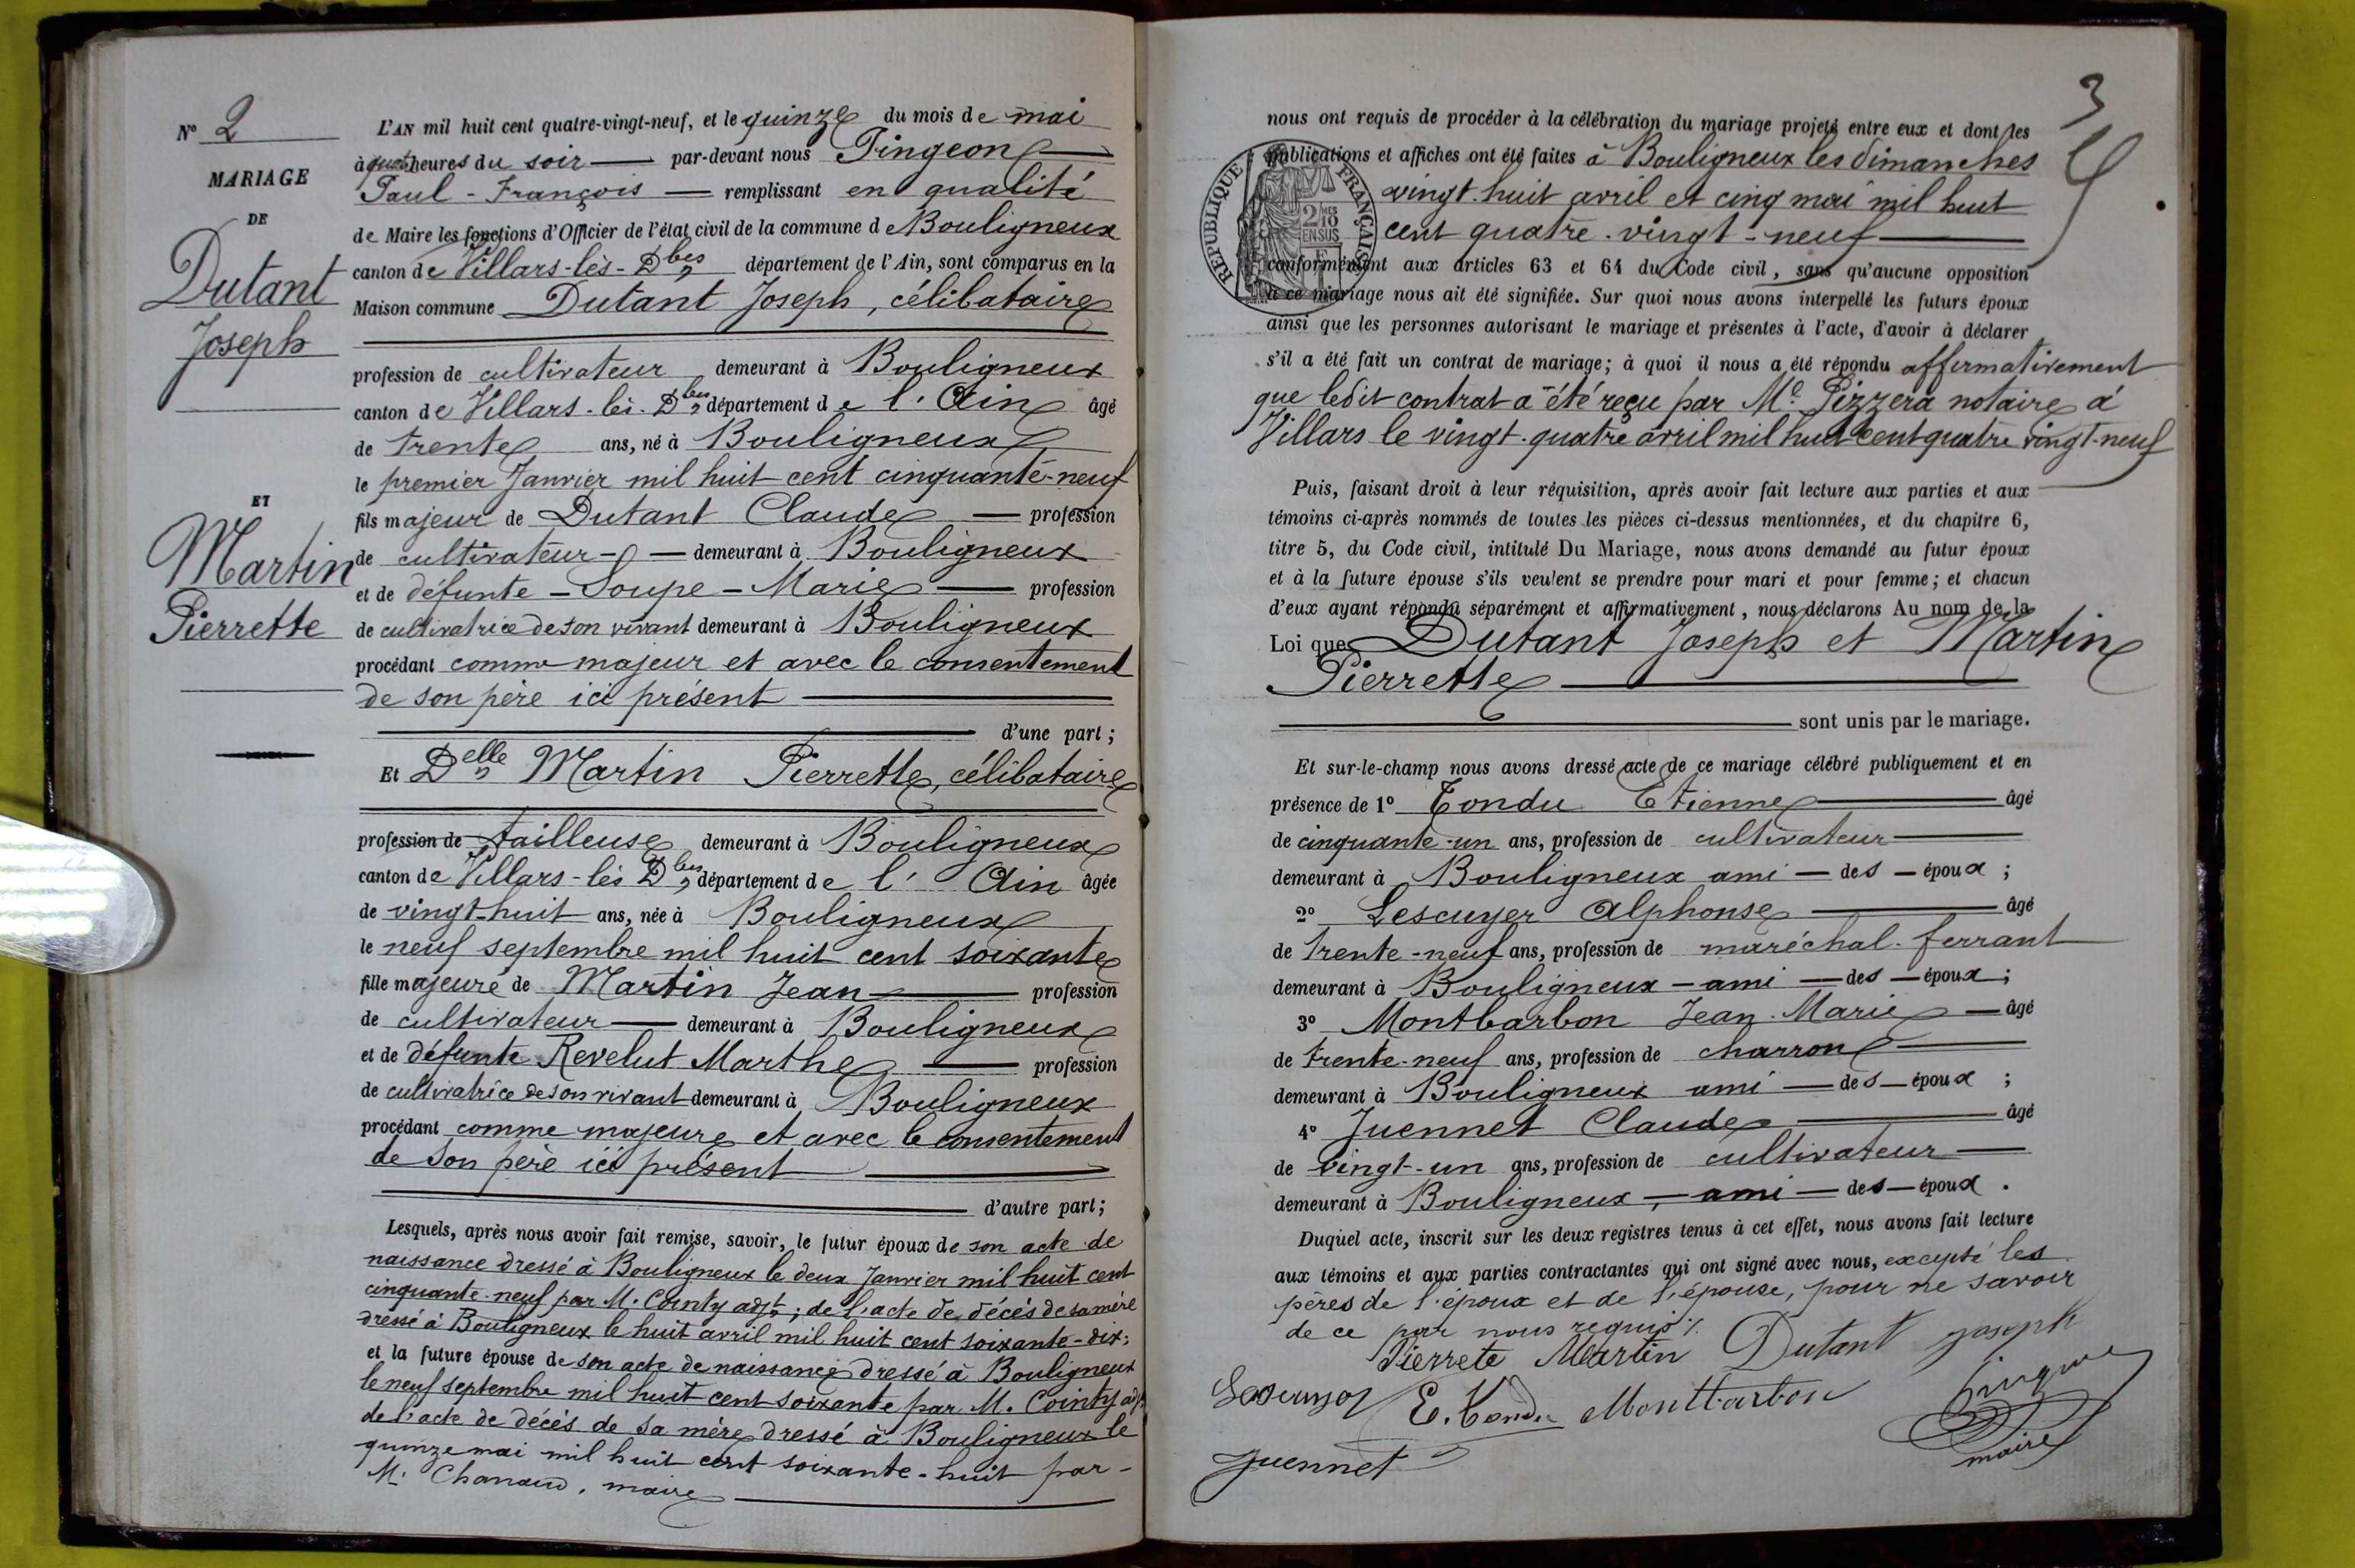 N° 2
MARIAGE
DE
Dutant
Joseph
ET
Martin
Pierrette
L'AN mil huit cent quatre-vingt-neuf, et le quinze du mois de mai
à quatre heures du soir — par-devant nous Pingeon
Paul - François — remplissant en qualité
de Maire les fonctions d'Officier de l'état civil de la commune de Bouligneux
canton de Villars-lès-Dbes département de l'Ain, sont comparus en la
Maison commune Dutant Joseph, célibataire
profession de cultivateur demeurant à Bouligneux
canton de Villars-lès-Dbes département de l'Ain âgé
de trente ans, né à Bouligneux
le premier Janvier mil huit cent cinquante-neuf
fils majeur de Dutant Claude — profession
de cultivateur — demeurant à Bouligneux
et de défunte - Soupe - Marie — profession
de cultivatrice de son vivant demeurant à Bouligneux
procédant comme majeur et avec le consentement
de son père ici présent
d'une part ;
Et Delle Martin Pierrette, célibataire
profession de tailleuse demeurant à Bouligneux
canton de Villars-lès Dbes département de l'Ain âgée
de vingt-huit ans, née à Bouligneux
le neuf septembre mil huit cent soixante
fille majeure de Martin Jean — profession
de cultivateur — demeurant à Bouligneux
et de défunte Revelut Marthe — profession
de cultivatrice de son vivant demeurant à Bouligneux
procédant comme majeure et avec le consentement
de son père ici présent
d'autre part ;
Lesquels, après nous avoir fait remise, savoir, le futur époux de son acte de
naissance dressé à Bouligneux le deux Janvier mil huit cent
cinquante-neuf par M. Cointy adjt ; de l'acte de décès de sa mère
dressé à Bouligneux le huit avril mil huit cent soixante-dix ;
et la future épouse de son acte de naissance dressé à Bouligneux
le neuf septembre mil huit cent soixante par M. Cointy adjt
de l'acte de décès de sa mère dressé à Bouligneux le
quinze mai mil huit cent soixante-huit par -
M. maire
3
nous ont requis de procéder à la célébration du mariage projeté entre eux et dont les
publications et affiches ont été faites à Bouligneux les dimanches
vingt-huit avril et cinq mai mil huit
cent quatre-vingt-neuf
RÉPUBLIQUE FRANÇAISE
2/10 MES
EN SUS
conformément aux articles 63 et 64 du Code civil, sans qu'aucune opposition
à ce mariage nous ait été signifiée. Sur quoi nous avons interpellé les futurs époux
ainsi que les personnes autorisant le mariage et présentes à l'acte, d'avoir à déclarer
s'il a été fait un contrat de mariage ; à quoi il nous a été répondu affirmativement
que ledit contrat a été reçu par Me Pizzera notaire à
Villars le vingt-quatre avril mil huit cent quatre vingt-neuf
Puis, faisant droit à leur réquisition, après avoir fait lecture aux parties et aux
témoins ci-après nommés de toutes les pièces ci-dessus mentionnées, et du chapitre 6,
titre 5, du Code civil, intitulé Du Mariage, nous avons demandé au futur époux
et à la future épouse s'ils veulent se prendre pour mari et pour femme ; et chacun
d'eux ayant répondu séparément et affirmativement, nous déclarons Au nom de la
Loi que Dutant Joseph et Martin
Pierrette
sont unis par le mariage.
Et sur-le-champ nous avons dressé acte de ce mariage célébré publiquement et en
présence de 1° Tondu Etienne — âgé
de cinquante-un ans, profession de cultivateur
demeurant à Bouligneux ami — des — époux ;
2° Lescuyer Alphonse — âgé
de trente-neuf ans, profession de maréchal-ferrant
demeurant à Bouligneux - ami — des — époux ;
3° Montbarbon Jean-Marie — âgé
de trente-neuf ans, profession de charron
demeurant à Bouligneux ami — des — époux ;
4° Juennet Claude — âgé
de vingt-un ans, profession de cultivateur
demeurant à Bouligneux, - ami — des — époux.
Duquel acte, inscrit sur les deux registres tenus à cet effet, nous avons fait lecture
aux témoins et aux parties contractantes qui ont signé avec nous, excepté les
pères de l'époux et de l'épouse, pour ne savoir
de ce par nous requis %.
Pierrete Martin Dutant joseph
E. Tondu Montbarbon
Juennet
maire